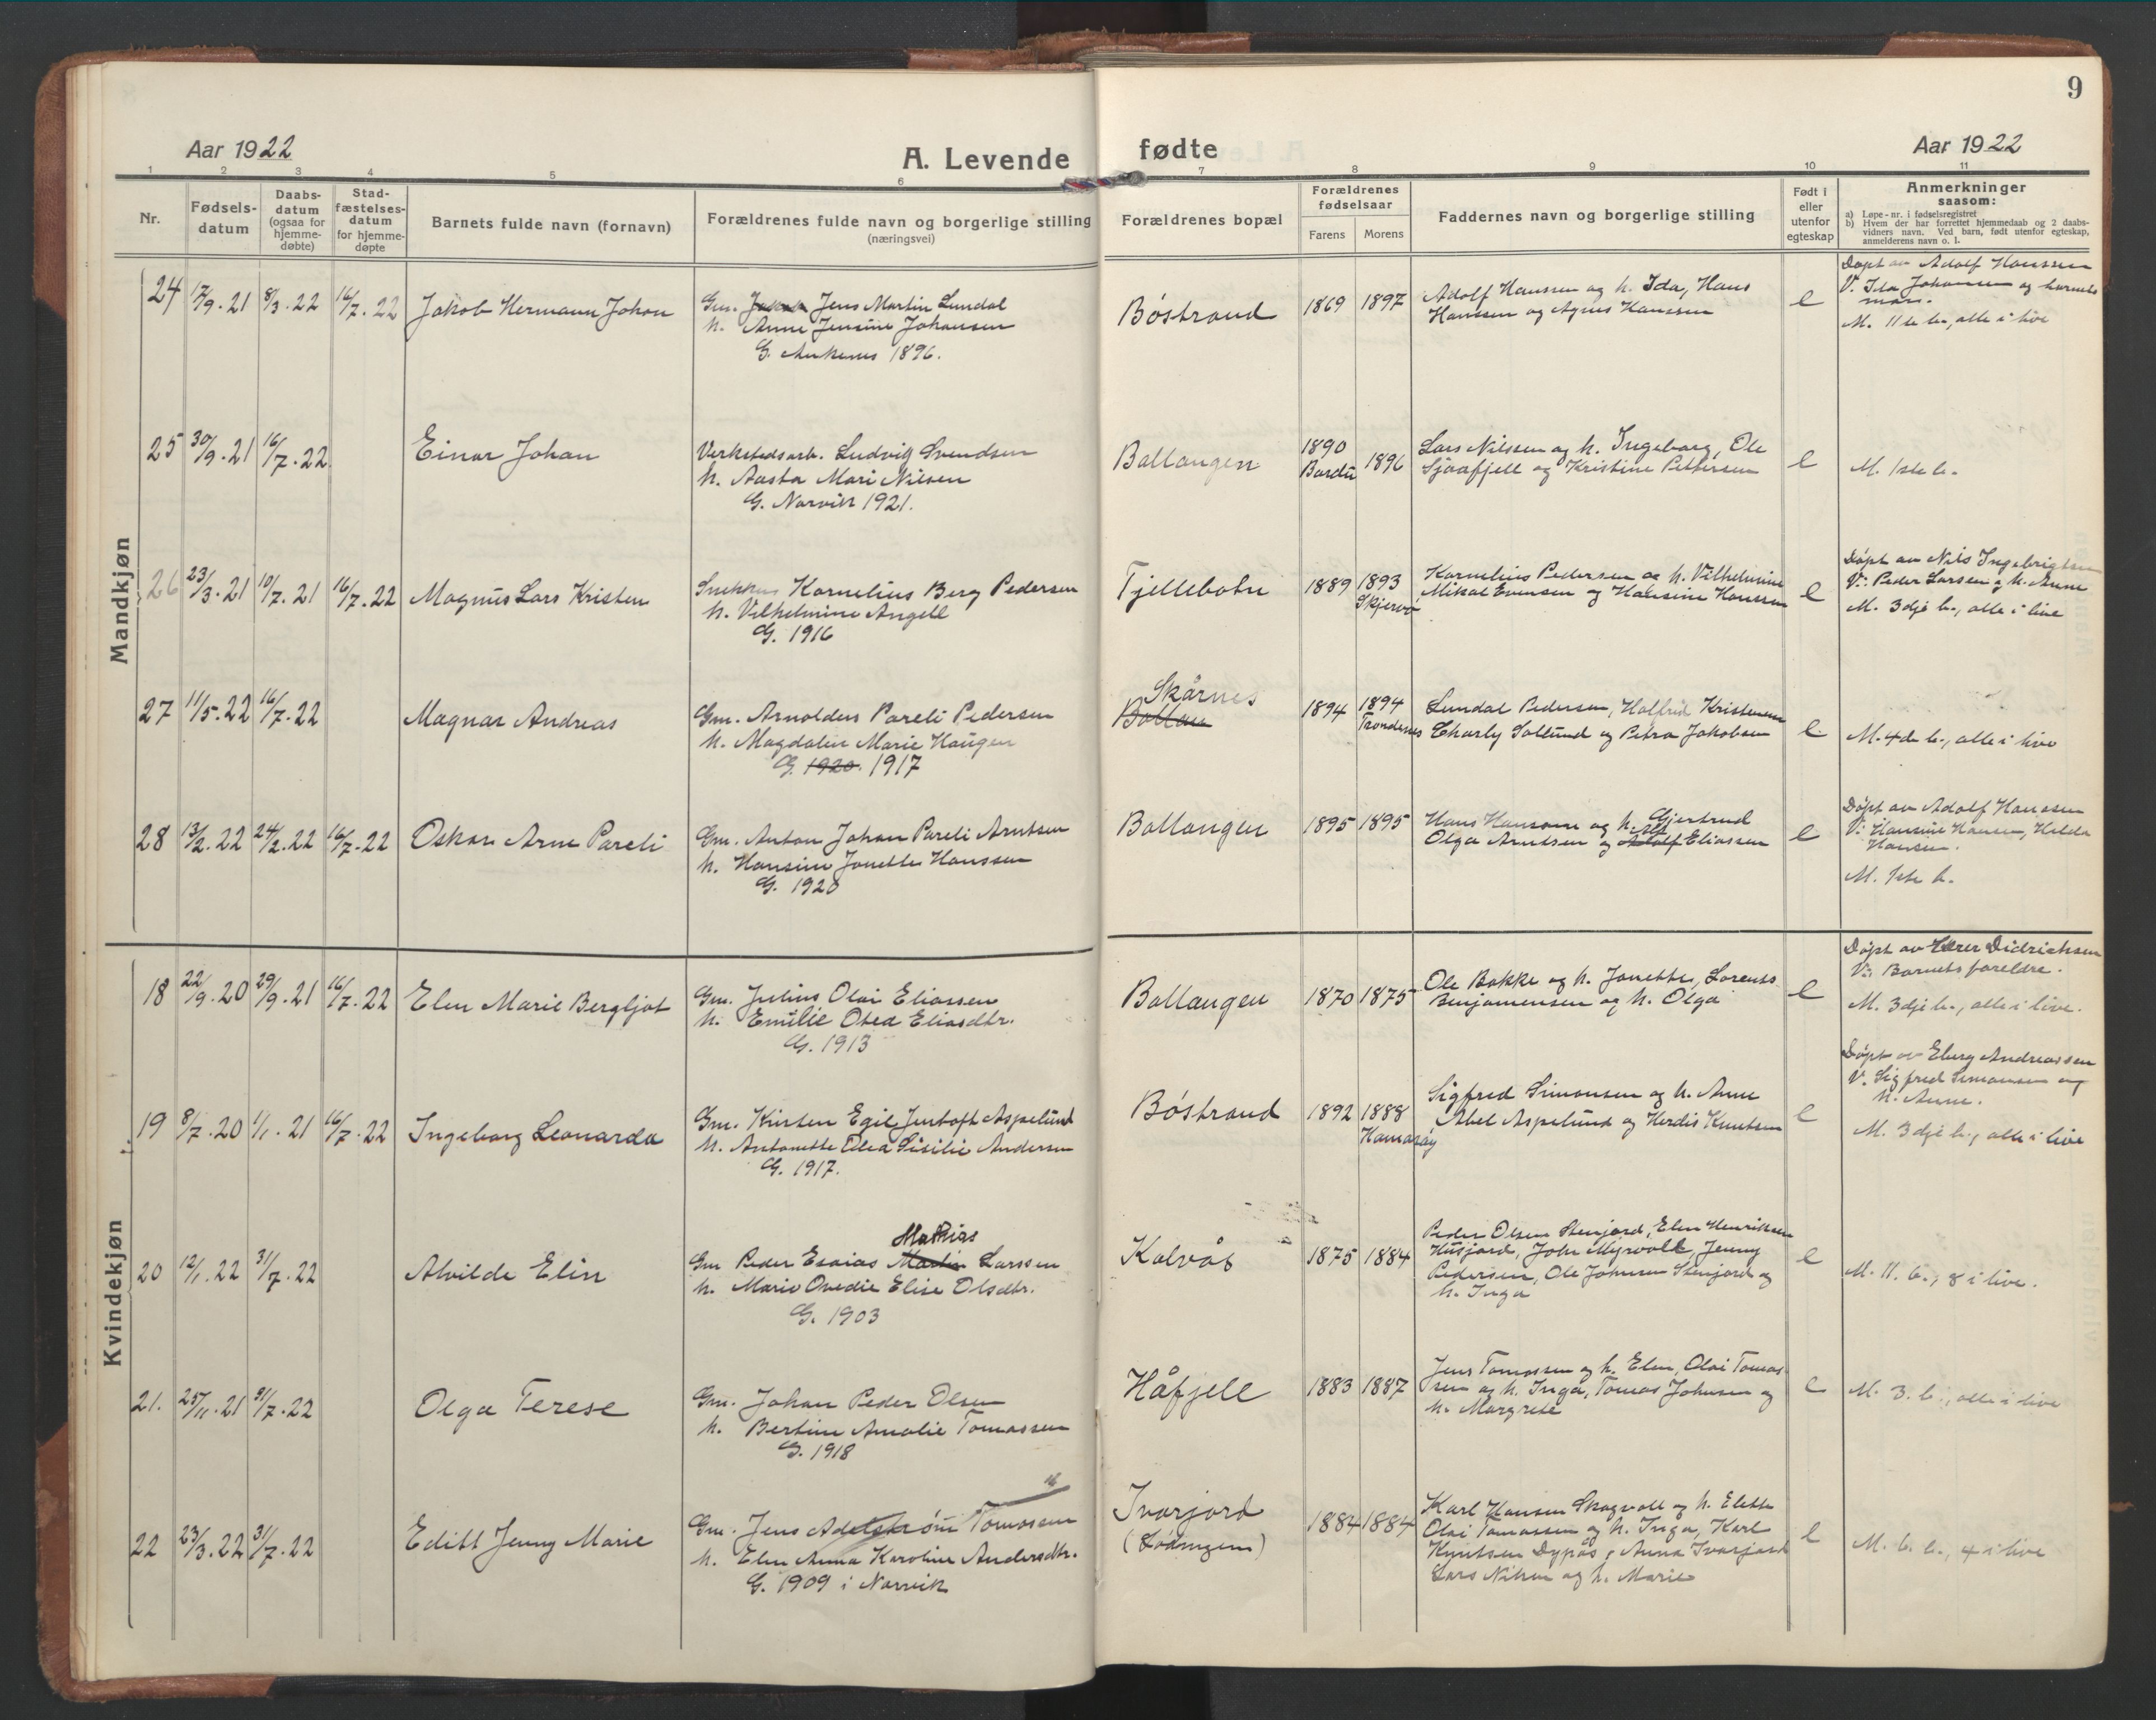 9
Aar 1922
A. Levende fødte
Aar 1922
1 2 3 4 5 6 7 8 9 10 11
Nr.
Fødsels-
datum
Daabs-
datum
(ogsaa for
hjemme-
døbte)
Stad-
fæstelses-
datum
for hjemme-
døpte
Barnets fulde navn (fornavn)
Forældrenes fulde navn og borgerlige stilling
(næringsvei)
Forældrenes bopæl
Forældrenes
fødselsaar
Farens Morens
Faddernes navn og borgerlige stilling
Født i
eller
utenfor
egteskap
Anmerkninger
saasom:
a) Løpe-nr. i fødselsregistret
b) Hvem der har forrettet hjemmedaab og 2 daabs-
vidners navn. Ved barn, født utenfor egteskap,
anmelderens navn o. l.
Mandkjøn
24 17/9.21 8/3.22 16/7.22 Jakob Hermann Johan
Gm. Jens Martin Lundal
h. Anne Jensine Johansen
G. Ankenes 1896.
Bøstrand 1869 1897
Adolf Hanssen og h. Ida, Hans
Hanssen og Agnes Hanssen
e
Døpt av Adolf Hanssen
V. Ida Johansen og barnets
mor.
M. 11te b., alle i live
25 30/9.21 16/7.22 Einar Johan
Verkstedsarb. Ludvig Svendsen
h. Aasta Mari Nilsen
G. Narvik 1921.
Ballangen 1890 Bardu 1896
Lars Nilssen og h. Ingeborg, Ole
Sjaafjell og Kristine Pettersen
e
M. 1ste b.
26 23/3.21 10/7.21 16/7.22 Magnus Lars Kristen
Snekker Kornelius Berg Pedersen
h. Vilhelmine Angell
G. 1916
Tjellebotn 1889 1893 Skjervø
Kornelius Pedersen og h. Vilhelmine
Mikal Evensen og Hansine Hanssen
e
Døpt av Nils Ingebrigtsen
V: Peder Larsen og h. Anne
M. 3dje b., alle i live
27 11/5.22 16/7.22 Magnar Andreas
Gm. Arnoldus Pareli Pedersen
h. Magdalin Marie Haugen
G. 1920. 1917
Skårnes
Ballan
1894 1894 Trondenes
Lundal Pedersen, Halfrid Kristensen
Charly Sollund og Petra Jakobsen
e
M. 4de b., alle i live
28 13/2.22 24/2.22 16/7.22 Oskar Arne Pareli
Gm. Anton Johan Pareli Arntsen
h. Hansine Jonette Hanssen
G. 1920
Ballangen 1895 1895
Hans Hansen og h. Gjertrud
Olga Arntsen og Adolf Eliassen
e
Døpt av Adolf Hanssen
V: Hansine Hansen, Hilda
Hansen.
M. 1ste b.
Kvindekjøn
18 22/9.20 29/9.21 16/7.22 Elen Marie Bergljot
Gm. Julius Olai Eliassen
h. Emilie Otea Eliasdtr.
G. 1913
Ballangen 1870 1875
Ole Bakke og h. Jonette, Lorents
Benjamensen og h. Olga
e
Døpt av Lærer Didrichsen
V: Barnets foreldre.
M. 3dje b., alle i live.
19 8/7.20 1/1.21 16/7.22 Ingeborg Leonarda
Gm. Kirsten Egil Jentoft Aspelund
h. Antonette Elea Sisilie Andersen
G. 1917.
Bøstrand 1892 1888 Hamarøy
Sigfred Simonsen og h. Anne
Abel Aspelund og Herdis Knutsen
e
Døpt av Eberg Andreassen
V. Sigfred Simonsen og
h. Anne.
M. 3dje b., alle i live
20 12/1.22 31/7.22 Alvilde Elin
Mathias
Gm Peder Esaias Martin Larssen
h. Marie Ovedie Elise Olsdtr.
G. 1903
Kalvås 1875 1884
Peder Olsen Stenjord, Elen Henriksen
Husjord, John Myrvoll, Jenny
Pedersen, Ole Johnsen Stenjord og
h. Inga
e
M. 11. b., 8 i live.
21. 25/11.21 31/7.22 Olga Terese
Gm. Johan Peder Olsen
h. Bertine Amalie Tomassen
G. 1918
Håfjell 1883 1887
Jens Tomassen og h. Elen, Olai Tomas-
sen og h. Inga, Tomas Johnsen og
h. Margrete
e
M. 3. b., alle i live
22 23/3.22 31/7.22 Editt Jenny Marie
Gm. Jens Adelstrøm Tomassen
h. Elen Anna Karoline Andersdtr.
G. 1909 i Narvik
Ivarjord
(Lødingen)
1884 1884
Karl Hansen Skogvoll og h. Elette
Olai Tomassen og h. Inga, Karl
Knutsen Dypås, Anna Ivarjord
Lars Nilsen og h. Marie
e
M. 6. b., 4 i live